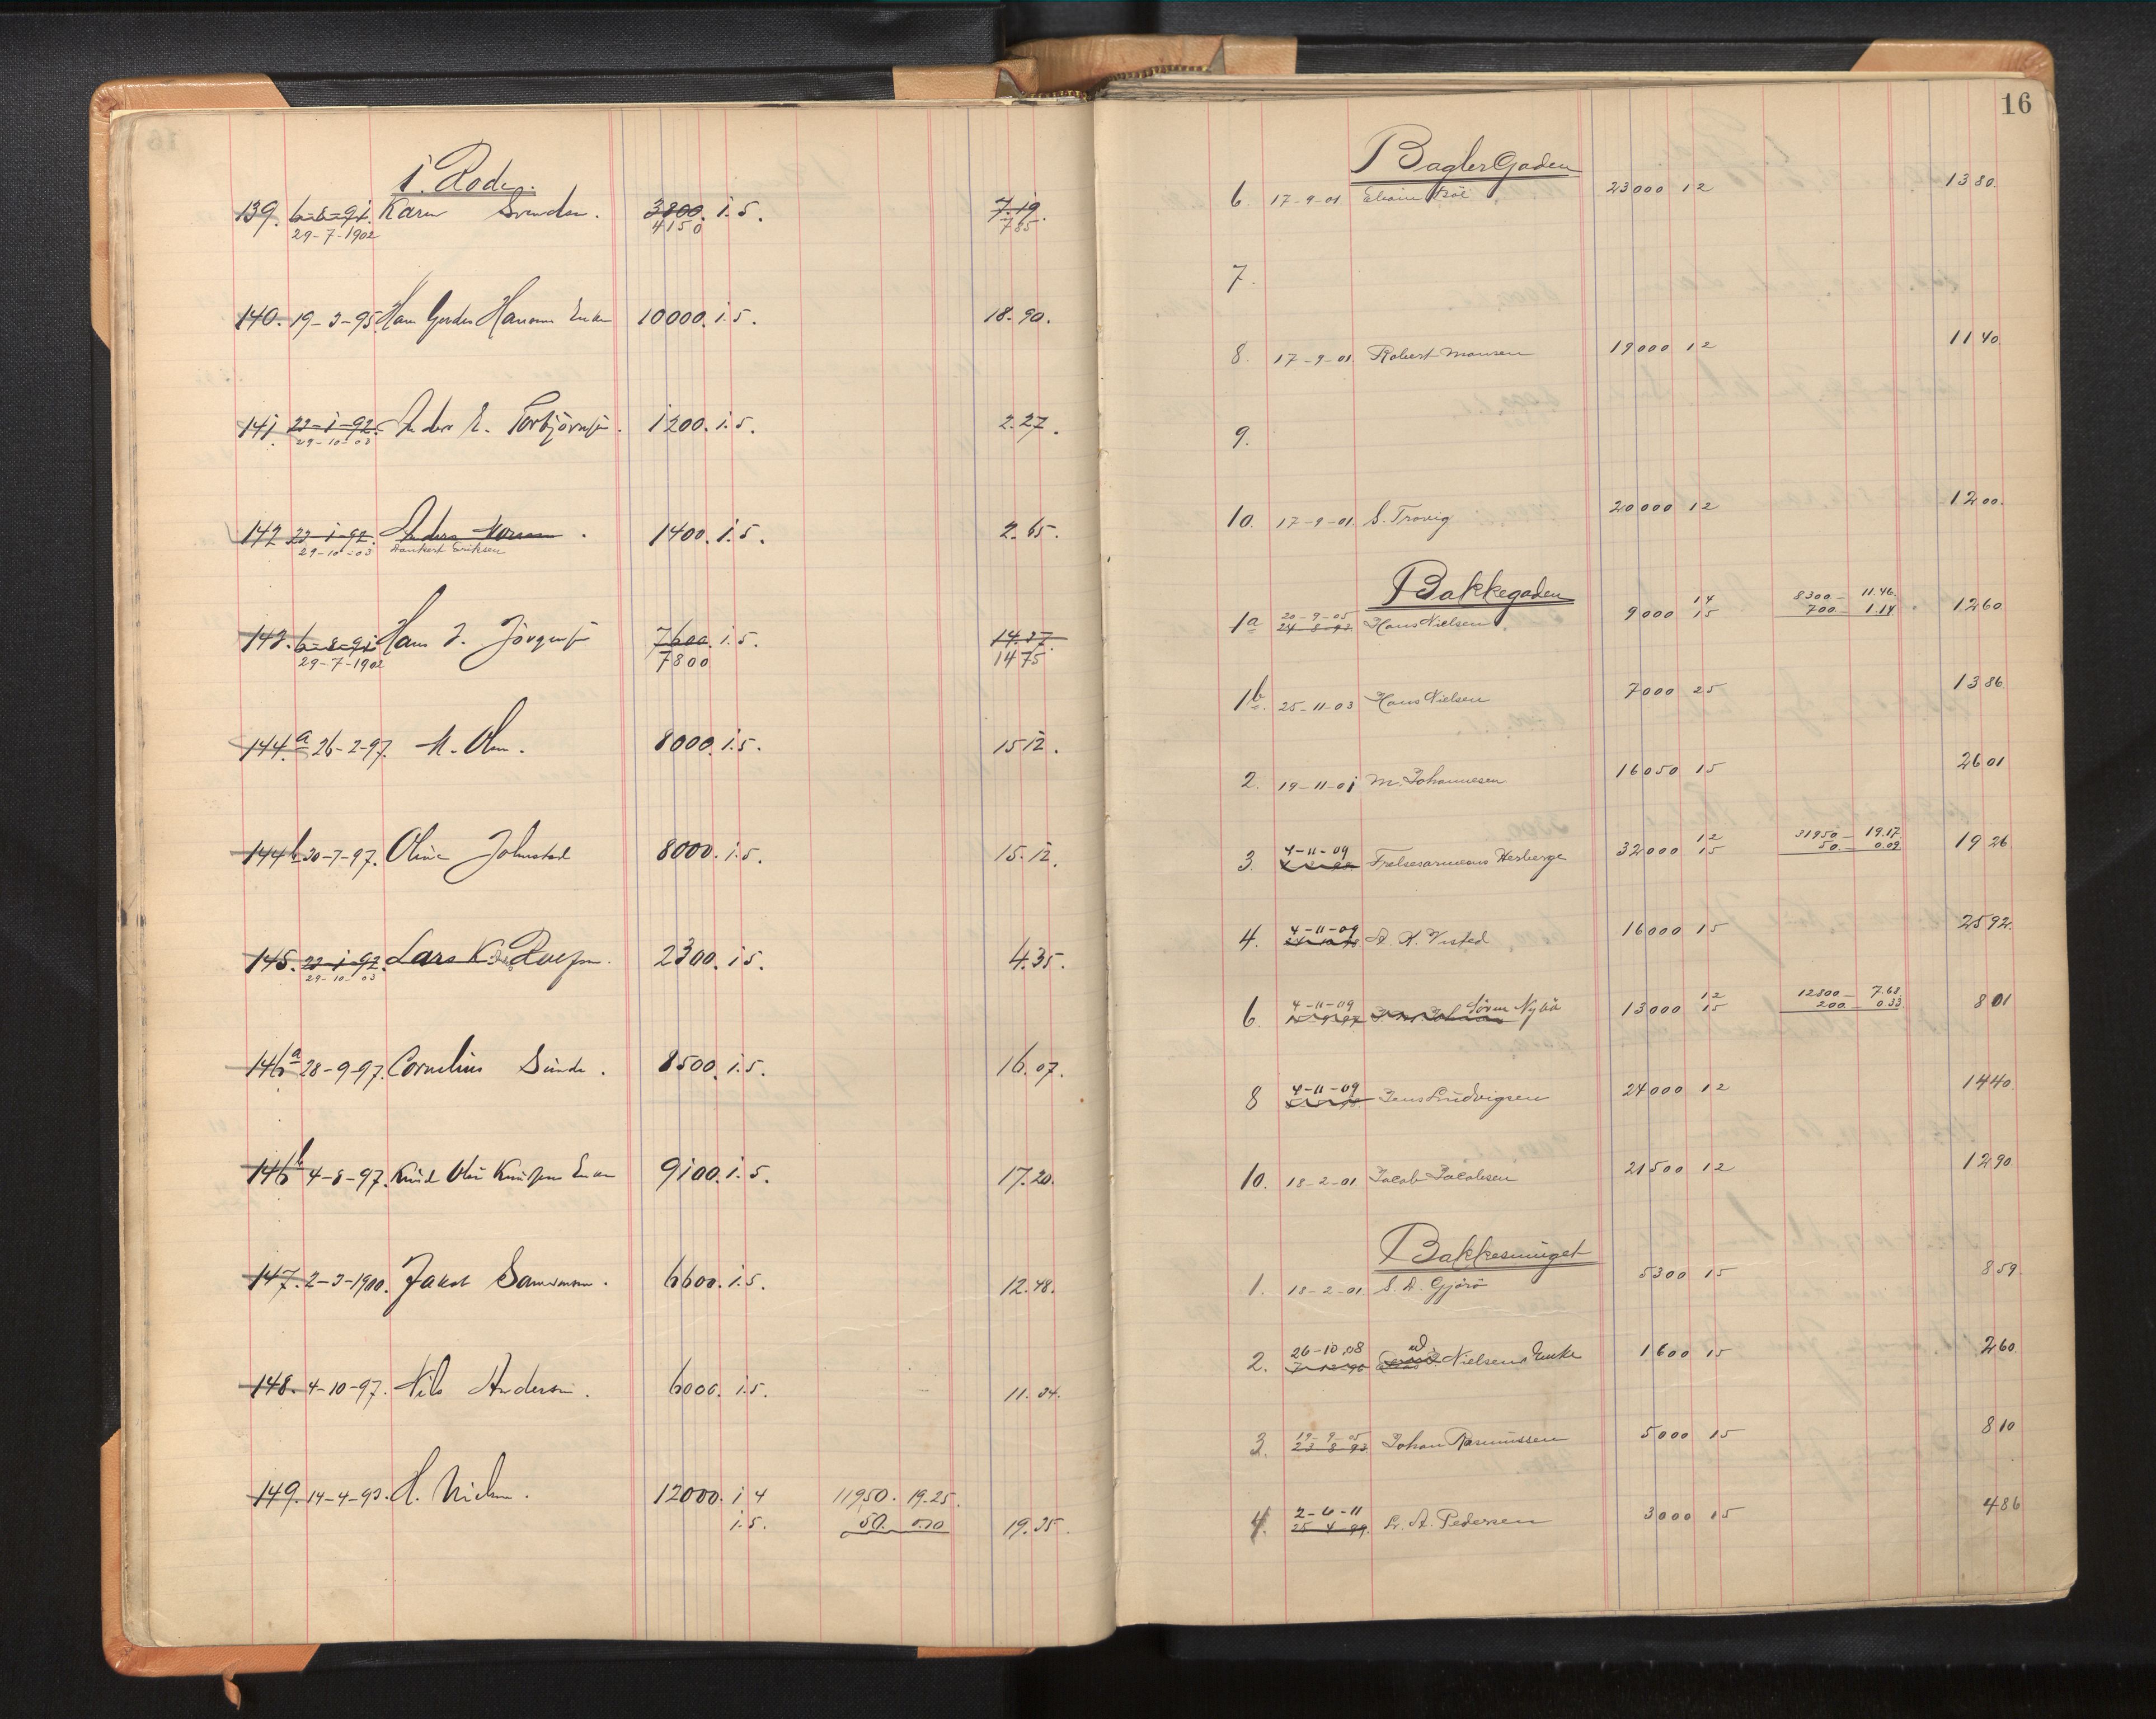 1. Rode.
139. 6-8-91. Karen Svendsen. 3800. 1.5. 7.19.
29-7-1902 4150 785
140. 19-3-95. Hans Hansens Enke 10000. 1.5. 18.90.
141. 22-1-92. Anders E. Torbjörnsen. 1200. 1.5. 2.27.
29-10-03
142 22-1-92. Anders 1400. 1.5. 2.65.
29-10-03 Eriksen
143. 6-8-91. Hans J. Jörgensen 7600. 1.5. 14.37.
29-7-1902 7800 1475
144.a 26-2-97. M. Olsen. 8000. 1.5. 15.12.
144b 30-7-97. Oline Johnstad 8000. 1.5. 15.12.
145. 22-1-92. Lars K. 2300. 1.5. 4.35.
29-10-03
146a 28-9-97. Cornelius Sunde. 8500. 1.5. 16.07.
146b 4-8-97. Knud Enke 9100. 1.5. 17.20.
147. 2-3-1900. Jakob Samsonsen. 6600. 1.5. 12.48.
148. 4-10-97. Nils Andersen. 6000. 1.5. 11.34.
149. 14-4-93. H. Nielsen. 12000. 1 4 11950. 19.25.
1.5. 50. 0.10 19.35.
16
BaglerGaden
6. 17-9-01. 23000 12 13 80.
7.
8. 17-9-01. Robert Monsen 19000 12 11 40.
9.
10. 17-9-01. S. Trovig 20000 12 12 00.
Bakkegaden
14 8300 - 11.46.
1a 20-9-05 Hans Nielsen 9000 15 700 - 1.14 12 60
24-8-93
1b. 25-11-03 Hans Nielsen 7000 25 13 86
2. 19-11-01 M. Johannesen 16050 15 26 01
12 31950 - 19.17.
3. 4-11-09 Frelsesarmeens Herberge 32000 15 50. 0.09 19 26
4. 4-11-09 A. K. Visted 16000 15 25 92.
12 12800 - 7.68.
6. 4-11-09 Sören Nybö 13000 15 200 0.33. 8 01
8 4-11-09 Jens Ludvigsen 24000 12 14 40.
10. 18-2-01 Jacob Jacobsen 21500 12 12 90
Bakkesmuget
1. 18-2-01. S. A. Gjörö 5300 15 8 59.
2. 26-10-08 Nielsens Enke 1600 15 2 60
3. 19-9-05 Johan Rasmussen 5000 15 8 10
23 8 93
4. 2-6-11 L. A. Pedersen 3000 15 4 86
25 4 99.